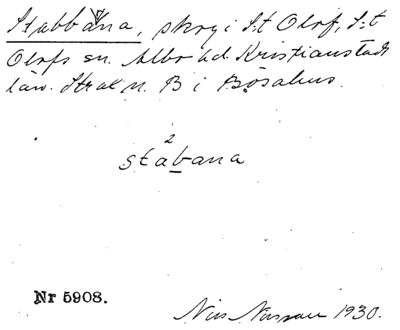 Stabbana, skog i S:t Olof, S:t
Olofs sn. Albo hd. Kristianstads
län. Strax n. B i Bosahus.
2
stabana
Nr 5908.
Nils Nassau 1930.